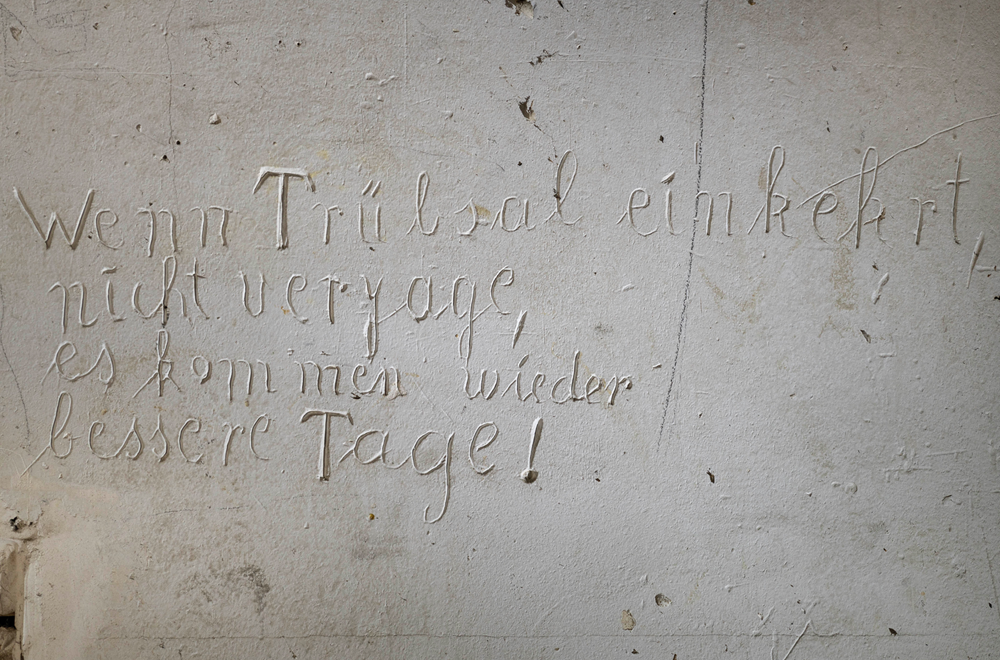 Wenn Trübsal einkehrt,
nicht verzage,
es kommen wieder
bessere Tage!